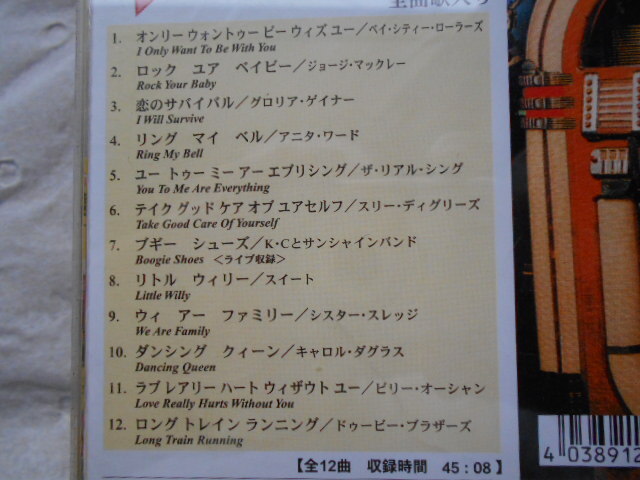 1. オンリー ウォントゥー ビー ウィズ ユー／ベイ・シティー・ローラーズ
I Only Want To Be With You
2. ロック ユア ベイビー／ジョージ・マックレー
Rock Your Baby
3. 恋のサバイバル／グロリア・ゲイナー
I Will Survive
4. リング マイ ベル／アニタ・ワード
Ring My Bell
5. ユー トゥー ミー アー エブリシング／ザ・リアル・シング
You To Me Are Everything
6. テイク グッド ケア オブ ユアセルフ／スリー・ディグリーズ
Take Good Care Of Yourself
7. ブギー シューズ／K・Cとサンシャインバンド
Boogie Shoes ＜ライブ収録＞
8. リトル ウィリー／スイート
Little Willy
9. ウィ アー ファミリー／シスター・スレッジ
We Are Family
10. ダンシング クィーン／キャロル・ダグラス
Dancing Queen
11. ラブ レアリー ハート ウィザウト ユー／ビリー・オーシャン
Love Really Hurts Without You
12. ロング トレイン ランニング／ドゥービー・ブラザーズ
Long Train Running
【全12曲 収録時間 45：08】
4 03891